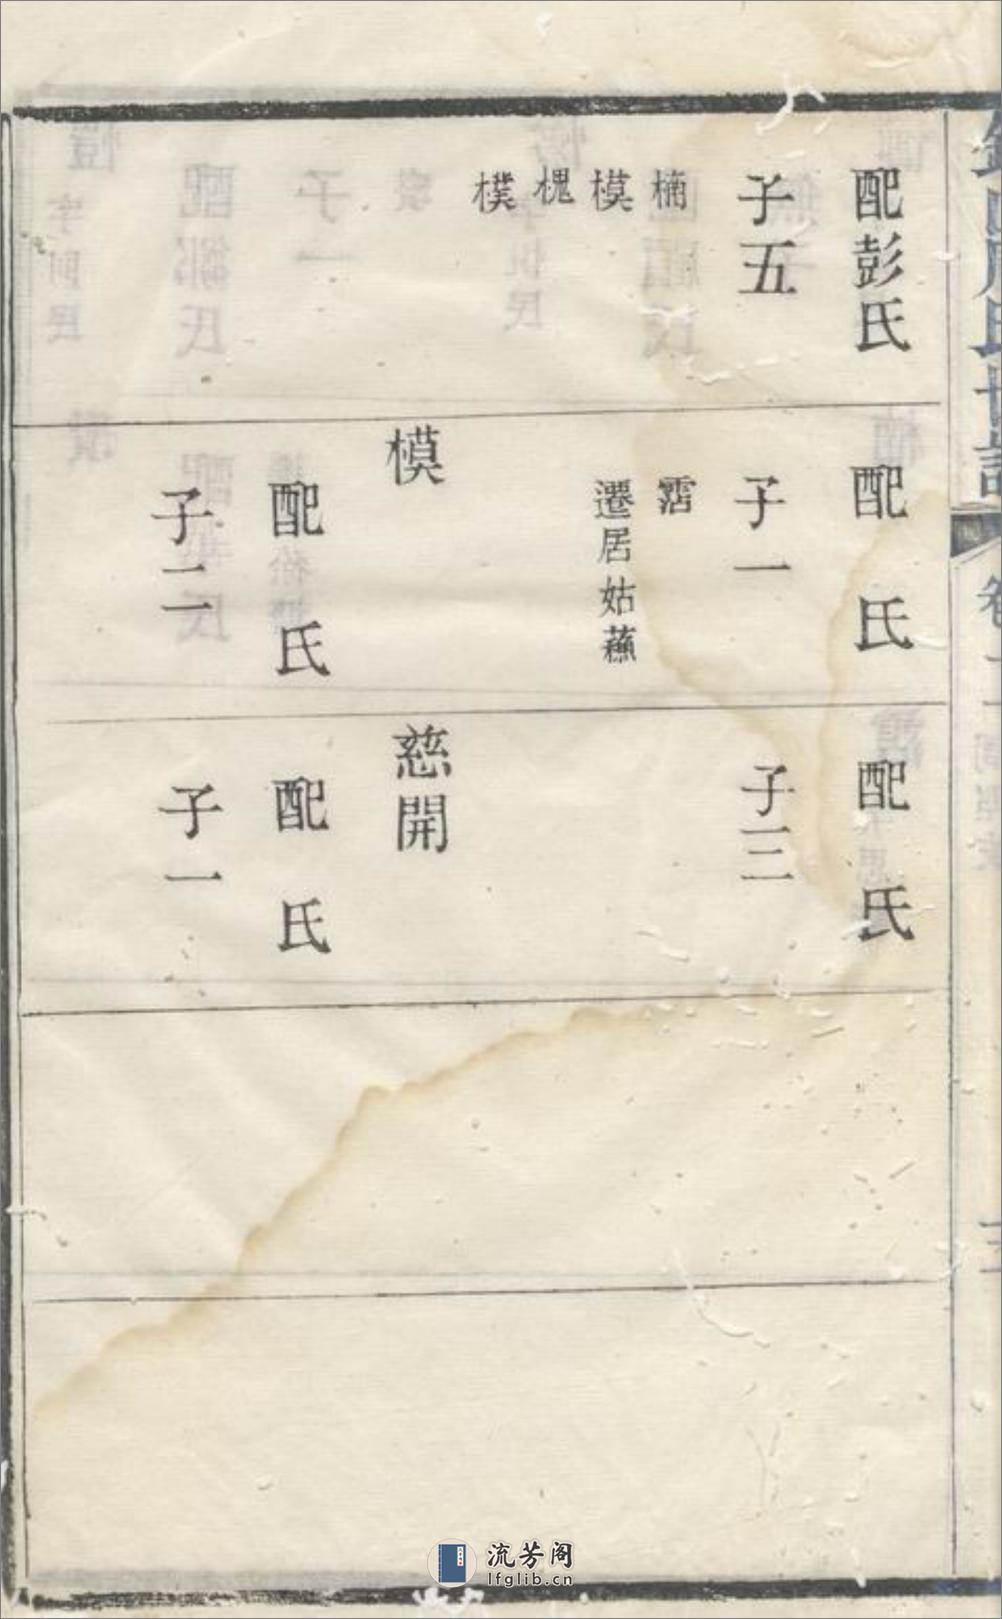 配彭氏
子五
楠
模
槐
樸
配 氏
子一
霑
遷居姑蘇
模
配 氏
子二
配 氏
子三
慈開
配 氏
子一
流芳阁
lfglib.cn